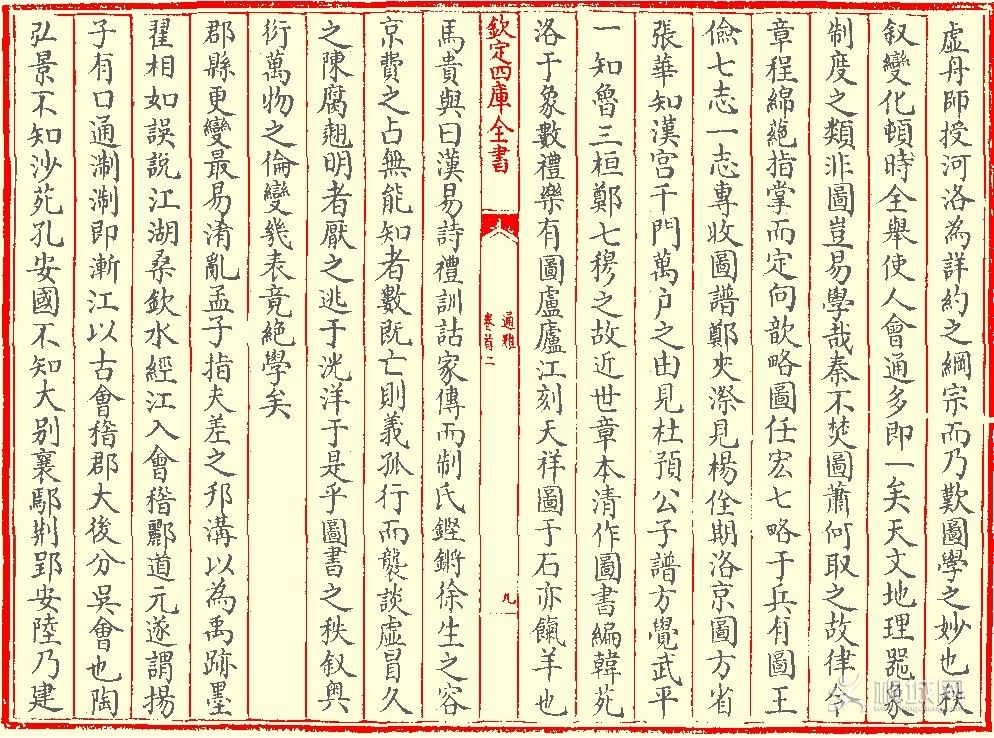 虛舟師授河洛為詳約之綱宗而乃歎圖學之妙也秩
叙變化頓時全舉使人會通多即一矣天文地理器象
制度之類非圖豈易學哉秦不焚圖蕭何取之故律
章程綿蕝指掌而定向歆略圖任宏七略于兵有圖王
儉七志一志專收圖譜鄭夾漈見楊佺期洛京圖方省
張華知漢宫千門萬户之由見杜預公子譜方覺武平
一知魯三桓鄭七穆之故近世章本清作圖書編韓苑
洛于象數禮樂有圖盧廬江刻天祥圖于石亦餼羊也
欽定四庫全書
通雅
卷首二
九
馬貴與曰漢易詩禮訓詁家傳而制氏鏗鏘徐生之容
京費之占無能知者數既亡則義孤行而襲談虛冒久
之陳腐趨明者厭之逃于洸洋于是乎圖書之秩叙輿
衍萬物之倫變幾表竟絶學矣
郡縣更變最易淆亂孟子指夫差之邗溝以為禹跡墨
翟相如誤説江湖桑欽水經江入會稽酈道元遂謂揚
子有口通淛淛即漸江以古會稽郡大後分吳會也陶
弘景不知沙苑孔安國不知大别襄鄢荆郢安陸乃建